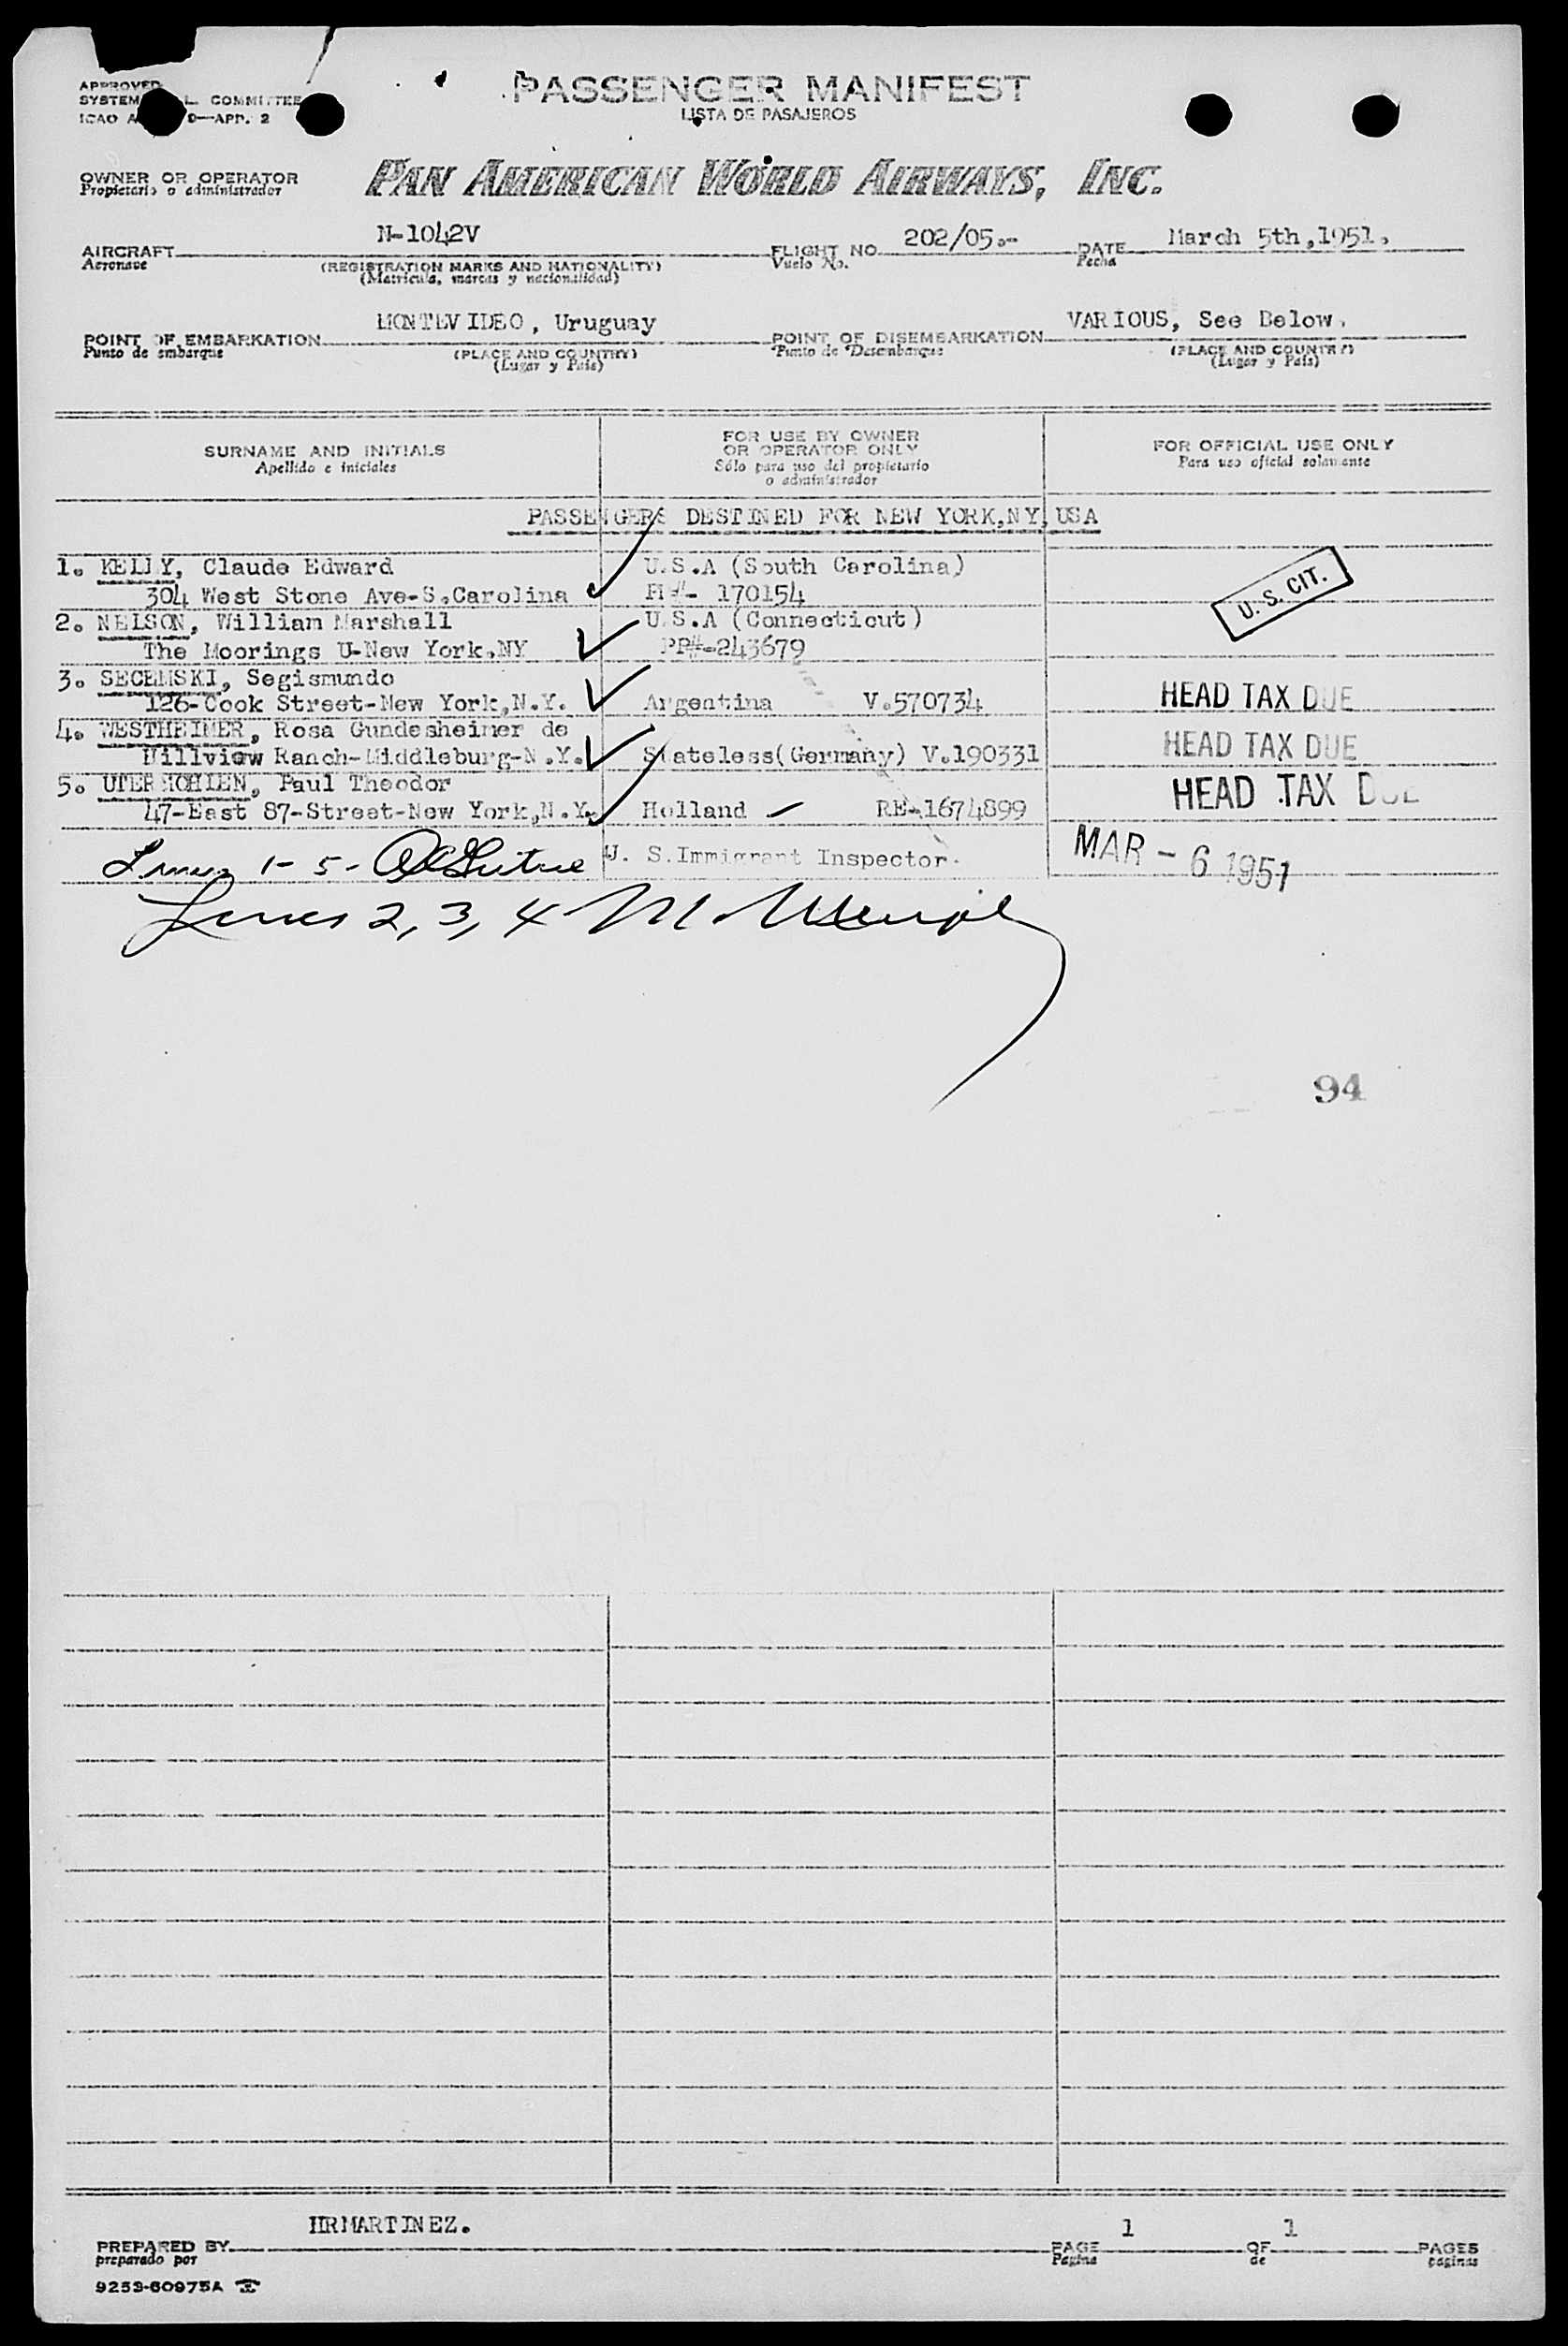 APPROVED
SYSTEM L COMMITTEE
ICAO A 9—APP. 2
PASSENGER MANIFEST
LISTA DE PASAJEROS
OWNER OR OPERATOR
Propietario o administrador
PAN AMERICAN WORLD AIRWAYS, INC.
AIRCRAFT N-1042V FLIGHT NO. 202/05.- DATE March 5th,1951.
Aeronave (REGISTRATION MARKS AND NATIONALITY) Vuelo No. Fecha
(Matricula, marcas y nacionalidad)
POINT OF EMBARKATION MONTEVIDEO, Uruguay POINT OF DISEMBARKATION VARIOUS, See Below.
Punto de embarque (PLACE AND COUNTRY) Punto de Desembarque (PLACE AND COUNTRY)
(Lugar y País) (Lugar y País)
SURNAME AND INITIALS
Apellido e iniciales
FOR USE BY OWNER
OR OPERATOR ONLY
Sólo para uso del propietario
o administrador
FOR OFFICIAL USE ONLY
Para uso oficial solamente
PASSENGERS DESTINED FOR NEW YORK,NY,USA
1. KELLY, Claude Edward U.S.A (South Carolina)
304 West Stone Ave-S.Carolina 170154 U. S. CIT.
2. NELSON, William Marshall U.S.A (Connecticut)
The Moorings U-New York,NY PP#-243679
3. SECEMSKI, Segismundo
126-Cook Street-New York,N.Y. Argentina V.570734 HEAD TAX DUE
4. WESTHEIMER, Rosa Gundesheimer de
Hillview Ranch-Middleburg-N.Y. Stateless(Germany) V.190331 HEAD TAX DUE
5. UTERMOHLEN, Paul Theodor
47-East 87-Street-New York,N.Y. Holland RE-1674899 HEAD TAX DUE
Lines 1-5- U. S.Immigrant Inspector. MAR - 6 1951
Lines 2, 3, 4 M.
94
HRMARTINEZ. 1 1
PREPARED BY PAGE OF PAGES
preparado por Página de páginas
9253-60975A